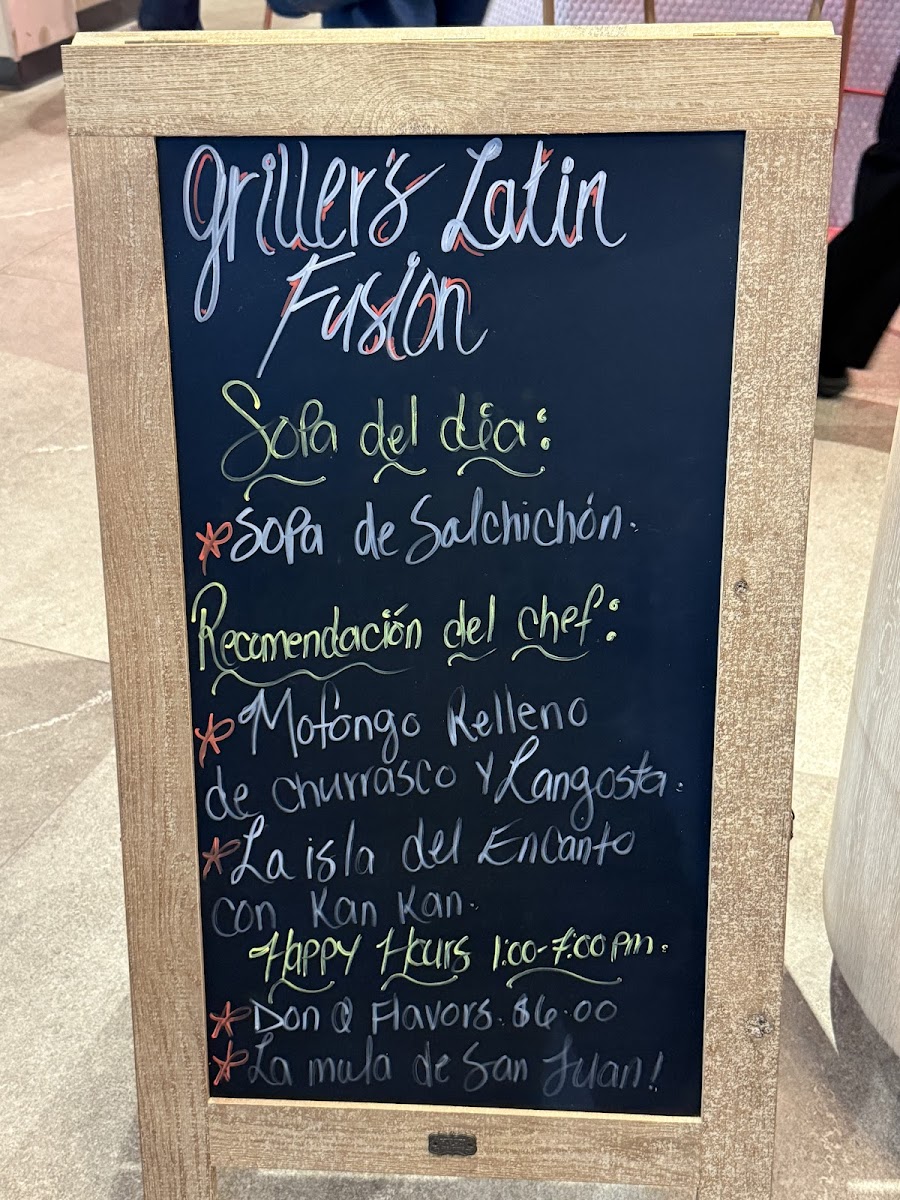 Griller's Latin
Fusion
Sopa del día:
* Sopa de Salchichón.
Recomendación del chef:
* Mofongo Relleno
de churrasco y Langosta.
* La isla del Encanto
con Kan Kan.
Happy Hours 1:00-7:00 pm.
* Don Q Flavors. $6.00
* La mula de San Juan!